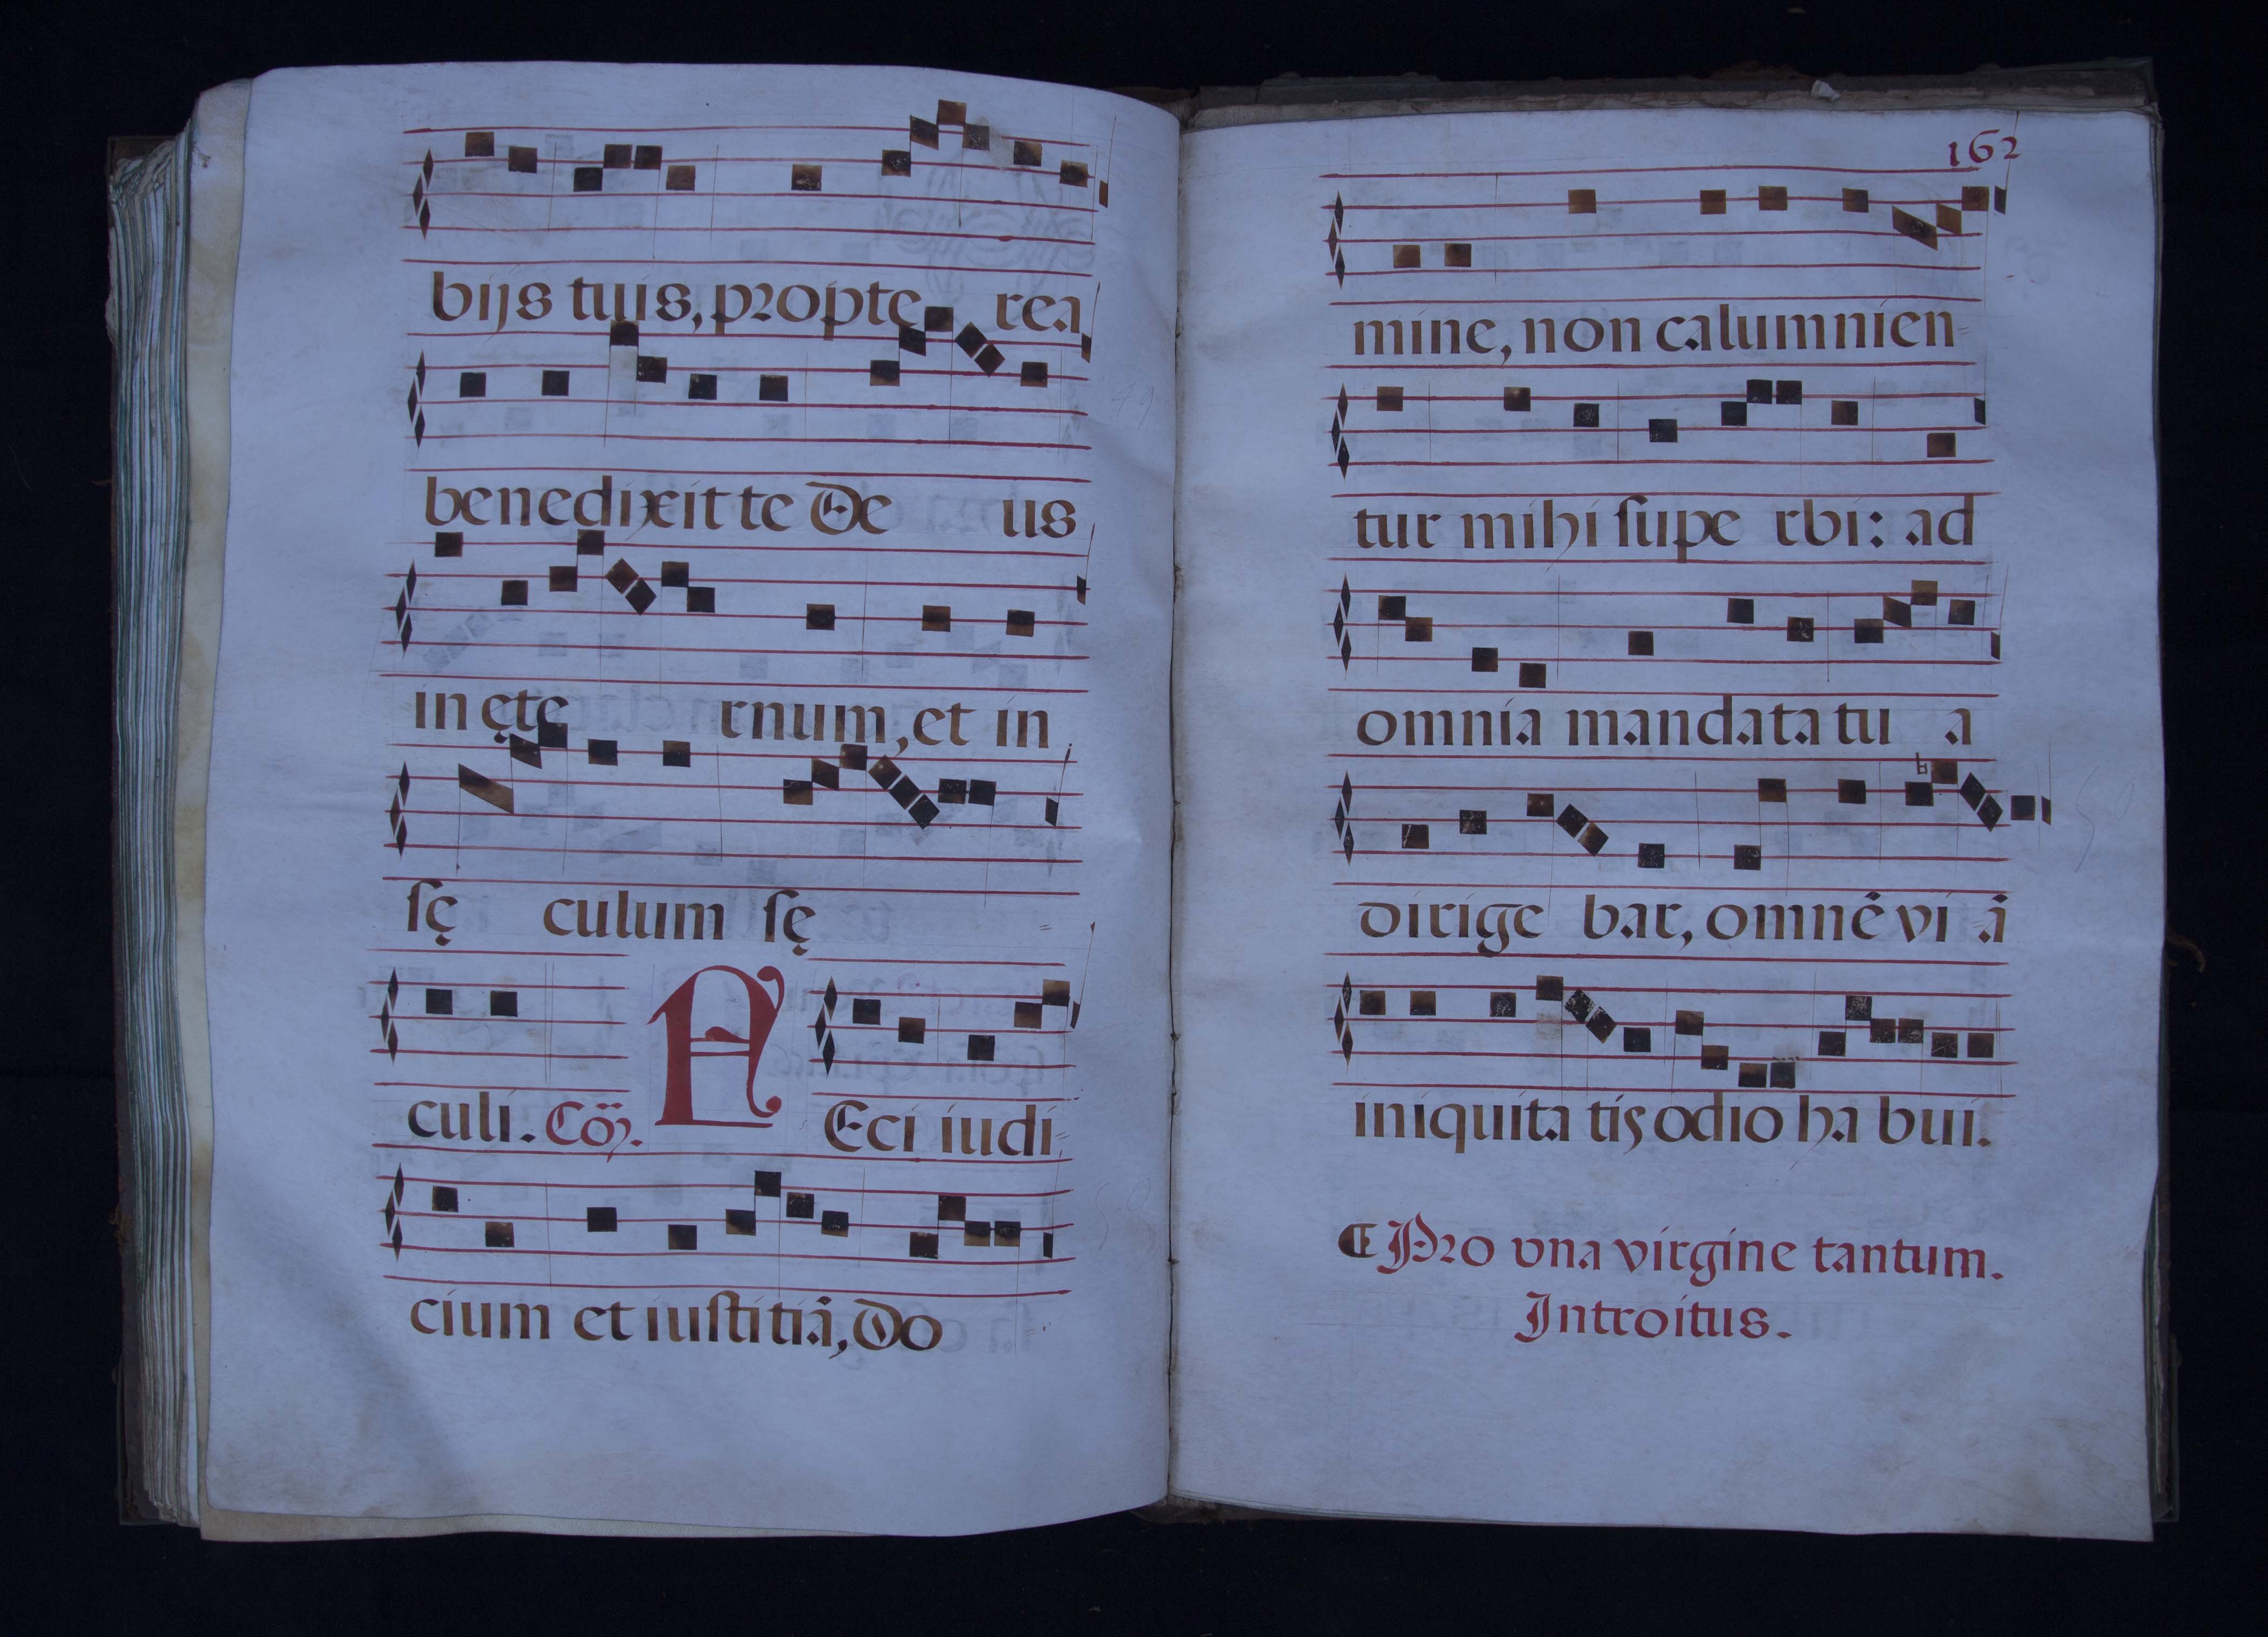 bijs tuis, propte rea
benedixit te De us
in ęte rnum, et in
sę culum sę =
culi. Cõ. F Eci iudi=
cium et iustitiã, Do =
162
mine, non calumnien=
tur mihi supe rbi: ad
omnia mandata tu a
dirige bar, omnẽ vi ã
iniquita tis odio ha bui.
Pro vna virgine tantum.
Introitus.